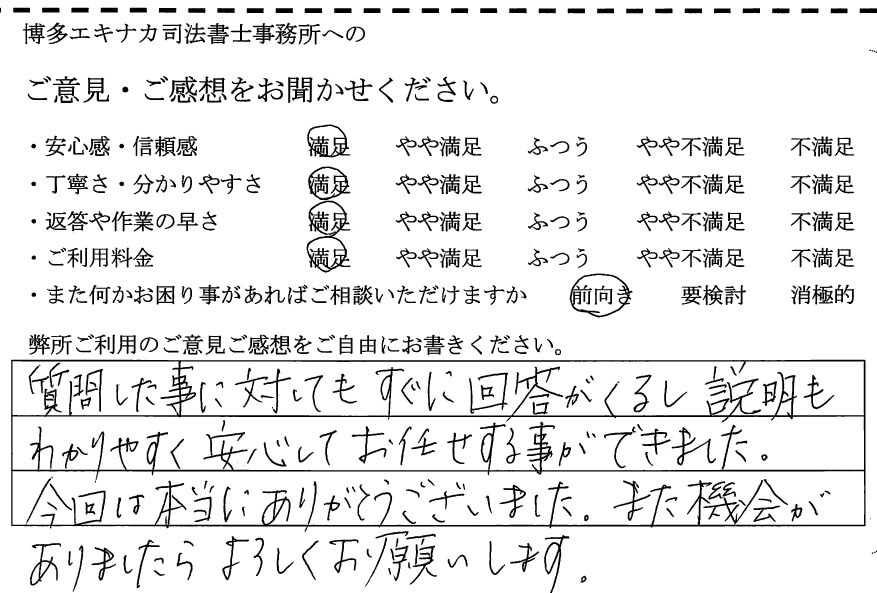 博多エキナカ司法書士事務所への
ご意見・ご感想をお聞かせください。
・安心感・信頼感 満足 やや満足 ふつう やや不満足 不満足
・丁寧さ・分かりやすさ 満足 やや満足 ふつう やや不満足 不満足
・返答や作業の早さ 満足 やや満足 ふつう やや不満足 不満足
・ご利用料金 満足 やや満足 ふつう やや不満足 不満足
・また何かお困り事があればご相談いただけますか 前向き 要検討 消極的
弊所ご利用のご意見ご感想をご自由にお書きください。
質問した事に対してもすぐに回答がくるし説明も
わかりやすく安心してお任せする事ができました。
今回は本当にありがとうございました。また機会が
ありましたらよろしくお願いします。